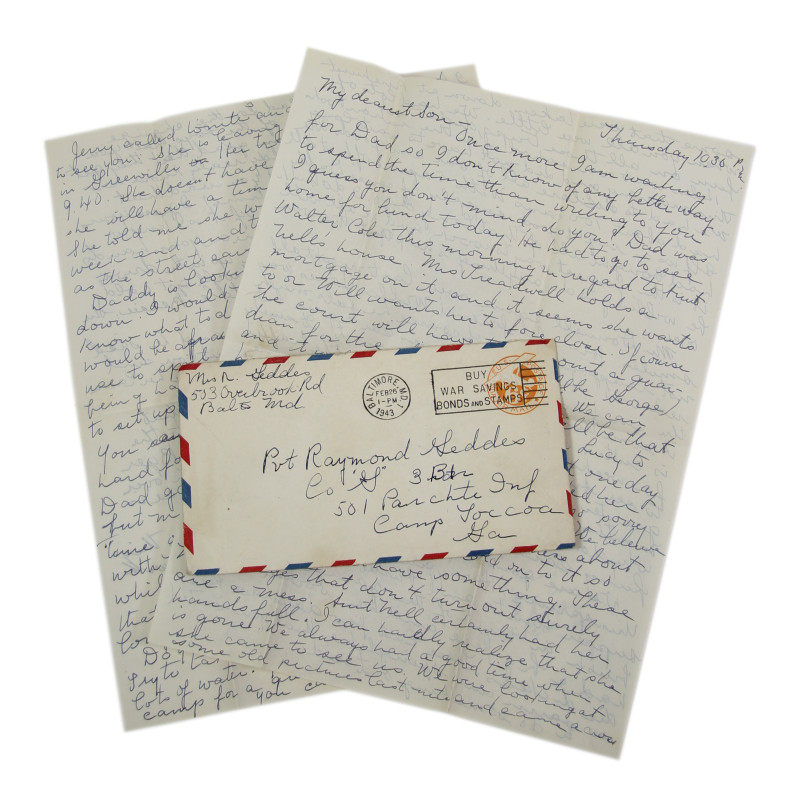 Jerry called write and
to see you. She is leaving
in Greenville on Her tra
9 40. She doesn't have
she will have a tim
She told me she w
week end and t
as the street car
Daddy is look
down. I would
know what to d
would be afrai
use to
being
to set up
You
hard for
Dad g
but m
time
with
whil
tha
for
Do
try to
lots of water.
camp for a
My dearest Son - Thursday 10.30 P.M.
Once more I am waiting
for Dad so I don't know of any better way
to spend the time than writing to you
I guess you don't mind do you? Dad was
home for lunch today. He had to go to see
Walter Cole this morning in regard to Aunt
Nell's house Mrs Treadwell holds a
mortgage on it and it seems she wants
to or Will wants her to foreclose of course
the court will have appoint a guar
dian for the
be George)
We can
ll be that
Lucy to
t one day
d her
sorry
Helena
ers about
old on to it so
have something. These
ges that don't turn out surely
are a mess. Aunt Nell certainly had her
hands full. I can hardly realize that she
is gone. We always had a good time when
she came to see us. We were looking at
some old pictures last nite and came across
you
Mrs R. Geddes
533 Overbrook Rd
Balto Md.
BALTIMORE, MD. 1
FEB 26
1 - PM
1943
BUY
WAR SAVINGS
BONDS AND STAMPS
Pvt Raymond Geddes
Co "G" 3 Btn
501 Parchte Inf
Camp Toccoa
Ga